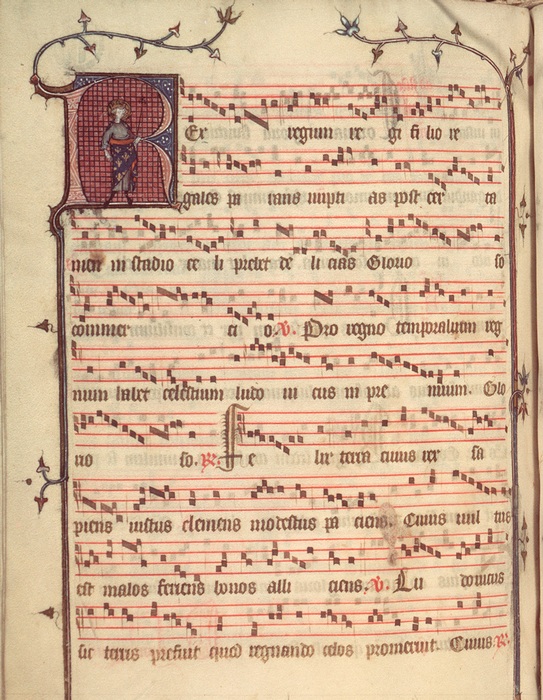 Rex regnum re gi filio re
gales pa rans nupti as post cer ta
men in stadio ce li prebet de li cias Glorio so
commer ci o. V. Pro regno temporalium reg
num habet celestium ludo ui cus in pre mium. Glo
rio so. R. Fe lix terra cuius rex sa
piens iustus clemens modestus pa ciens. Cuius uul tus
est malos feriens bonos alli ciens. V. Lu douicus
sic terris prefuit quod regnando celos promeruit. Cuius R.